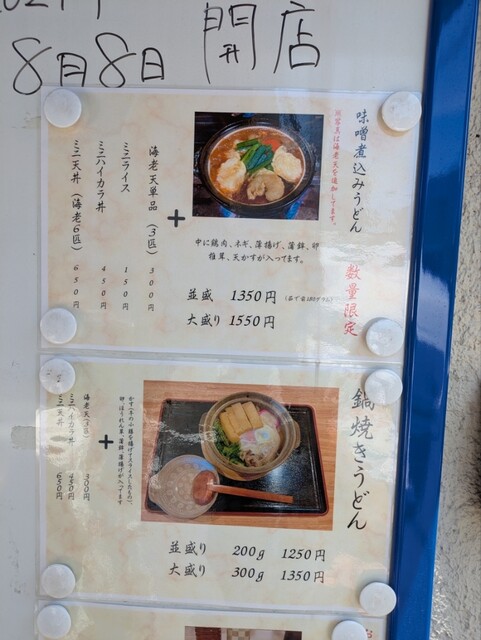 8月8日 開店
味噌煮込みうどん
数量限定
中に鶏肉、ネギ、薄揚げ、蒲鉾、卵
椎茸、天かすが入ってます。
並盛 1350円
大盛り 1550円
+
海老天単品(3匹) 300円
ミニライス 150円
ミニハイカラ丼 450円
ミニ天丼(海老6匹) 650円
鍋焼きうどん
並盛り 200g 1250円
大盛り 300g 1350円
+
かす(牛の小腸を揚げてスライスしたもの)、
卵、ほうれん草、蒲鉾、薄揚げが入ってます
海老天(3匹) 300円
ミニハイカラ丼 450円
ミニ天丼 650円